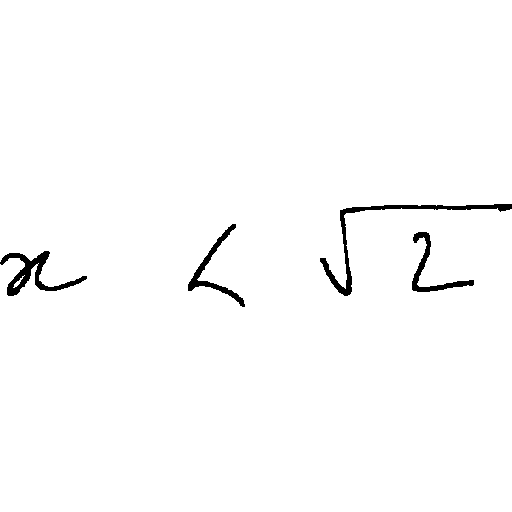 x < √2